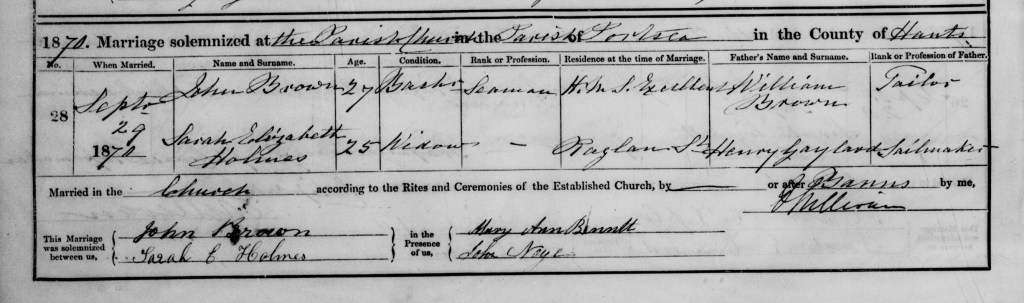 1870. Marriage solemnized at the Parish Church in the Parish of Portsea in the County of Hants
No. When Married. Name and Surname. Age. Condition. Rank or Profession. Residence at the time of Marriage. Father's Name and Surname. Rank or Profession of Father.
28 Septr 29 1870 John Brown 27 Bachr Seaman H.M.S. Excellent William Brown Tailor
Sarah Elizabeth Holmes 25 Widow - Raglan St Henry Gaylard Sailmaker
Married in the Church according to the Rites and Ceremonies of the Established Church, by — or after Banns by me,
This Marriage was solemnized between us, John Brown in the Presence of us, Mary Ann Bennett
Sarah E Holmes John Noye